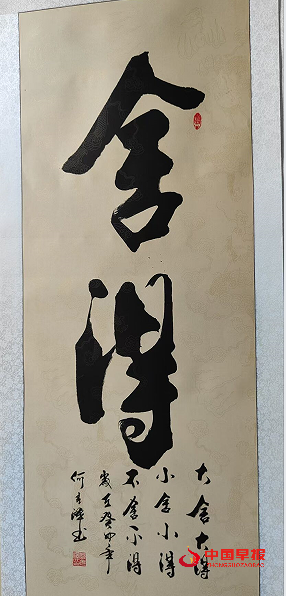 舍得
大舍大得
小舍小得
不舍不得
岁在癸卯年
何
书
中国早报